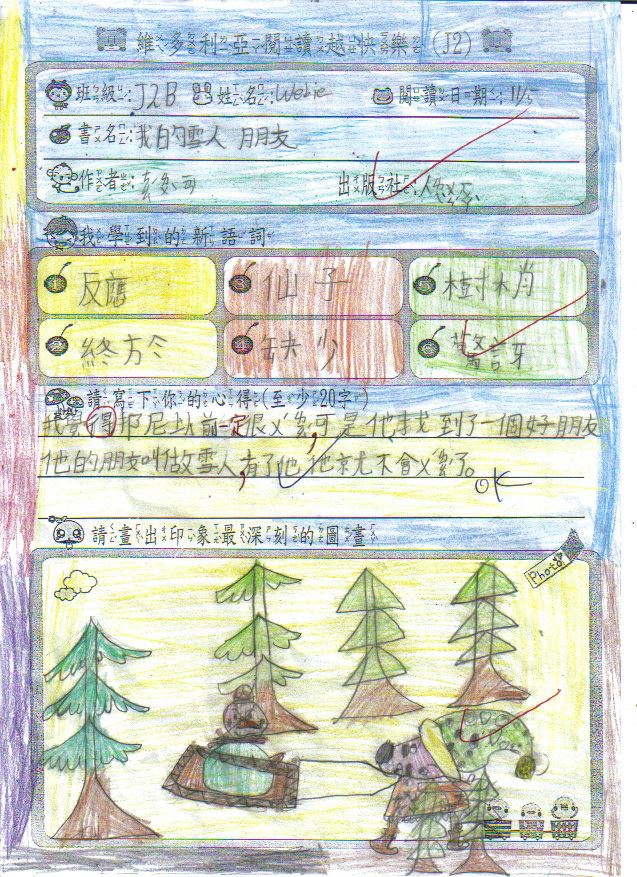 維多利亞閱讀越快樂 (J2)
班級：J2B 姓名： 閱讀日期：11/5
書名：我的雪人朋友
作者： 出版社：
我學到的新語詞
① 反應 ③ 仙子 ⑤ 樹梢
② 終於 ④ 缺少 ⑥ 警訝
請寫下你的心得(至少20字)
我覺得邦尼以前一定很ㄍㄨ單，可是他找到了一個好朋友
他的朋友叫做雪人，有了他他就不會ㄍㄨ單了。
OK
請畫出印象最深刻的圖畫
Photo